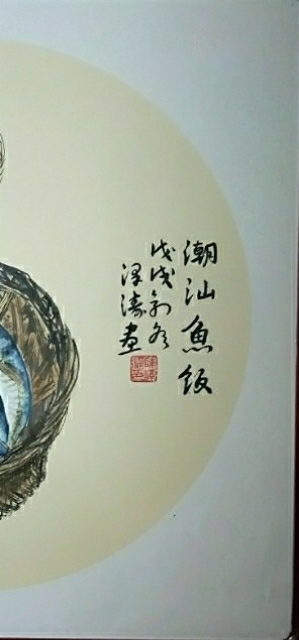 潮汕魚飯
戊戌初冬
澤濤畫